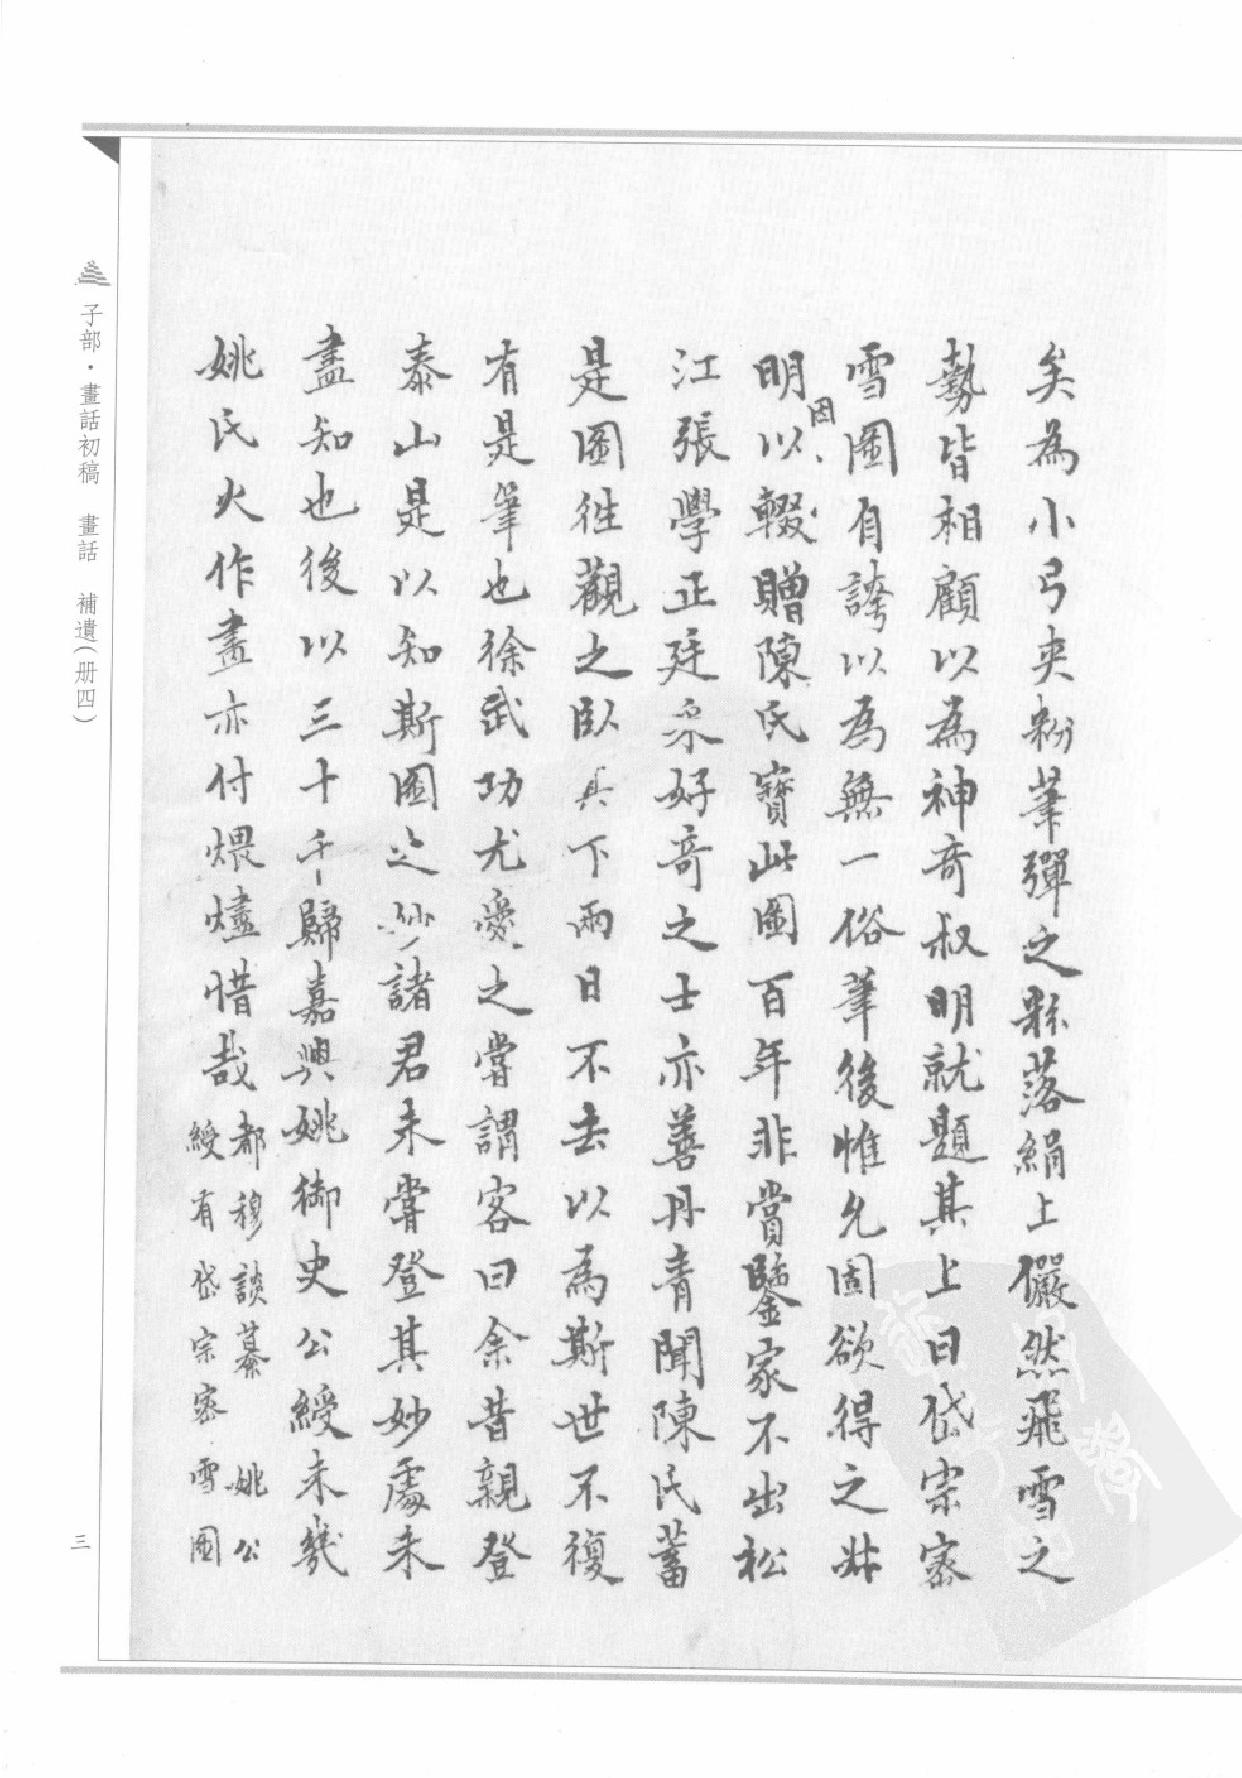 矣為小弓夾粉筆彈之粉落絹上儼然飛雪之
勢皆相顧以為神奇叔明就題其上曰岱宗密
雪圖自誇以為無一俗筆後惟允固欲得之叔
明以因輟贈陳氏寳此圖百年非賞鑒家不出松
江張學正廷采好奇之士亦善丹青聞陳氏蓄
是圖徃觀之臥其下兩日不去以為斯世不復
有是筆也徐武功尤愛之嘗謂客曰余昔親登
泰山是以知斯圖之妙諸君未嘗登其妙處未
盡知也後以三十千歸嘉興姚御史公綬未幾
姚氏火作畫亦付煨燼惜哉
都穆談纂 姚公
綬有岱宗密雪圖
子部·畫話初稿 畫話 補遺(册四)
三